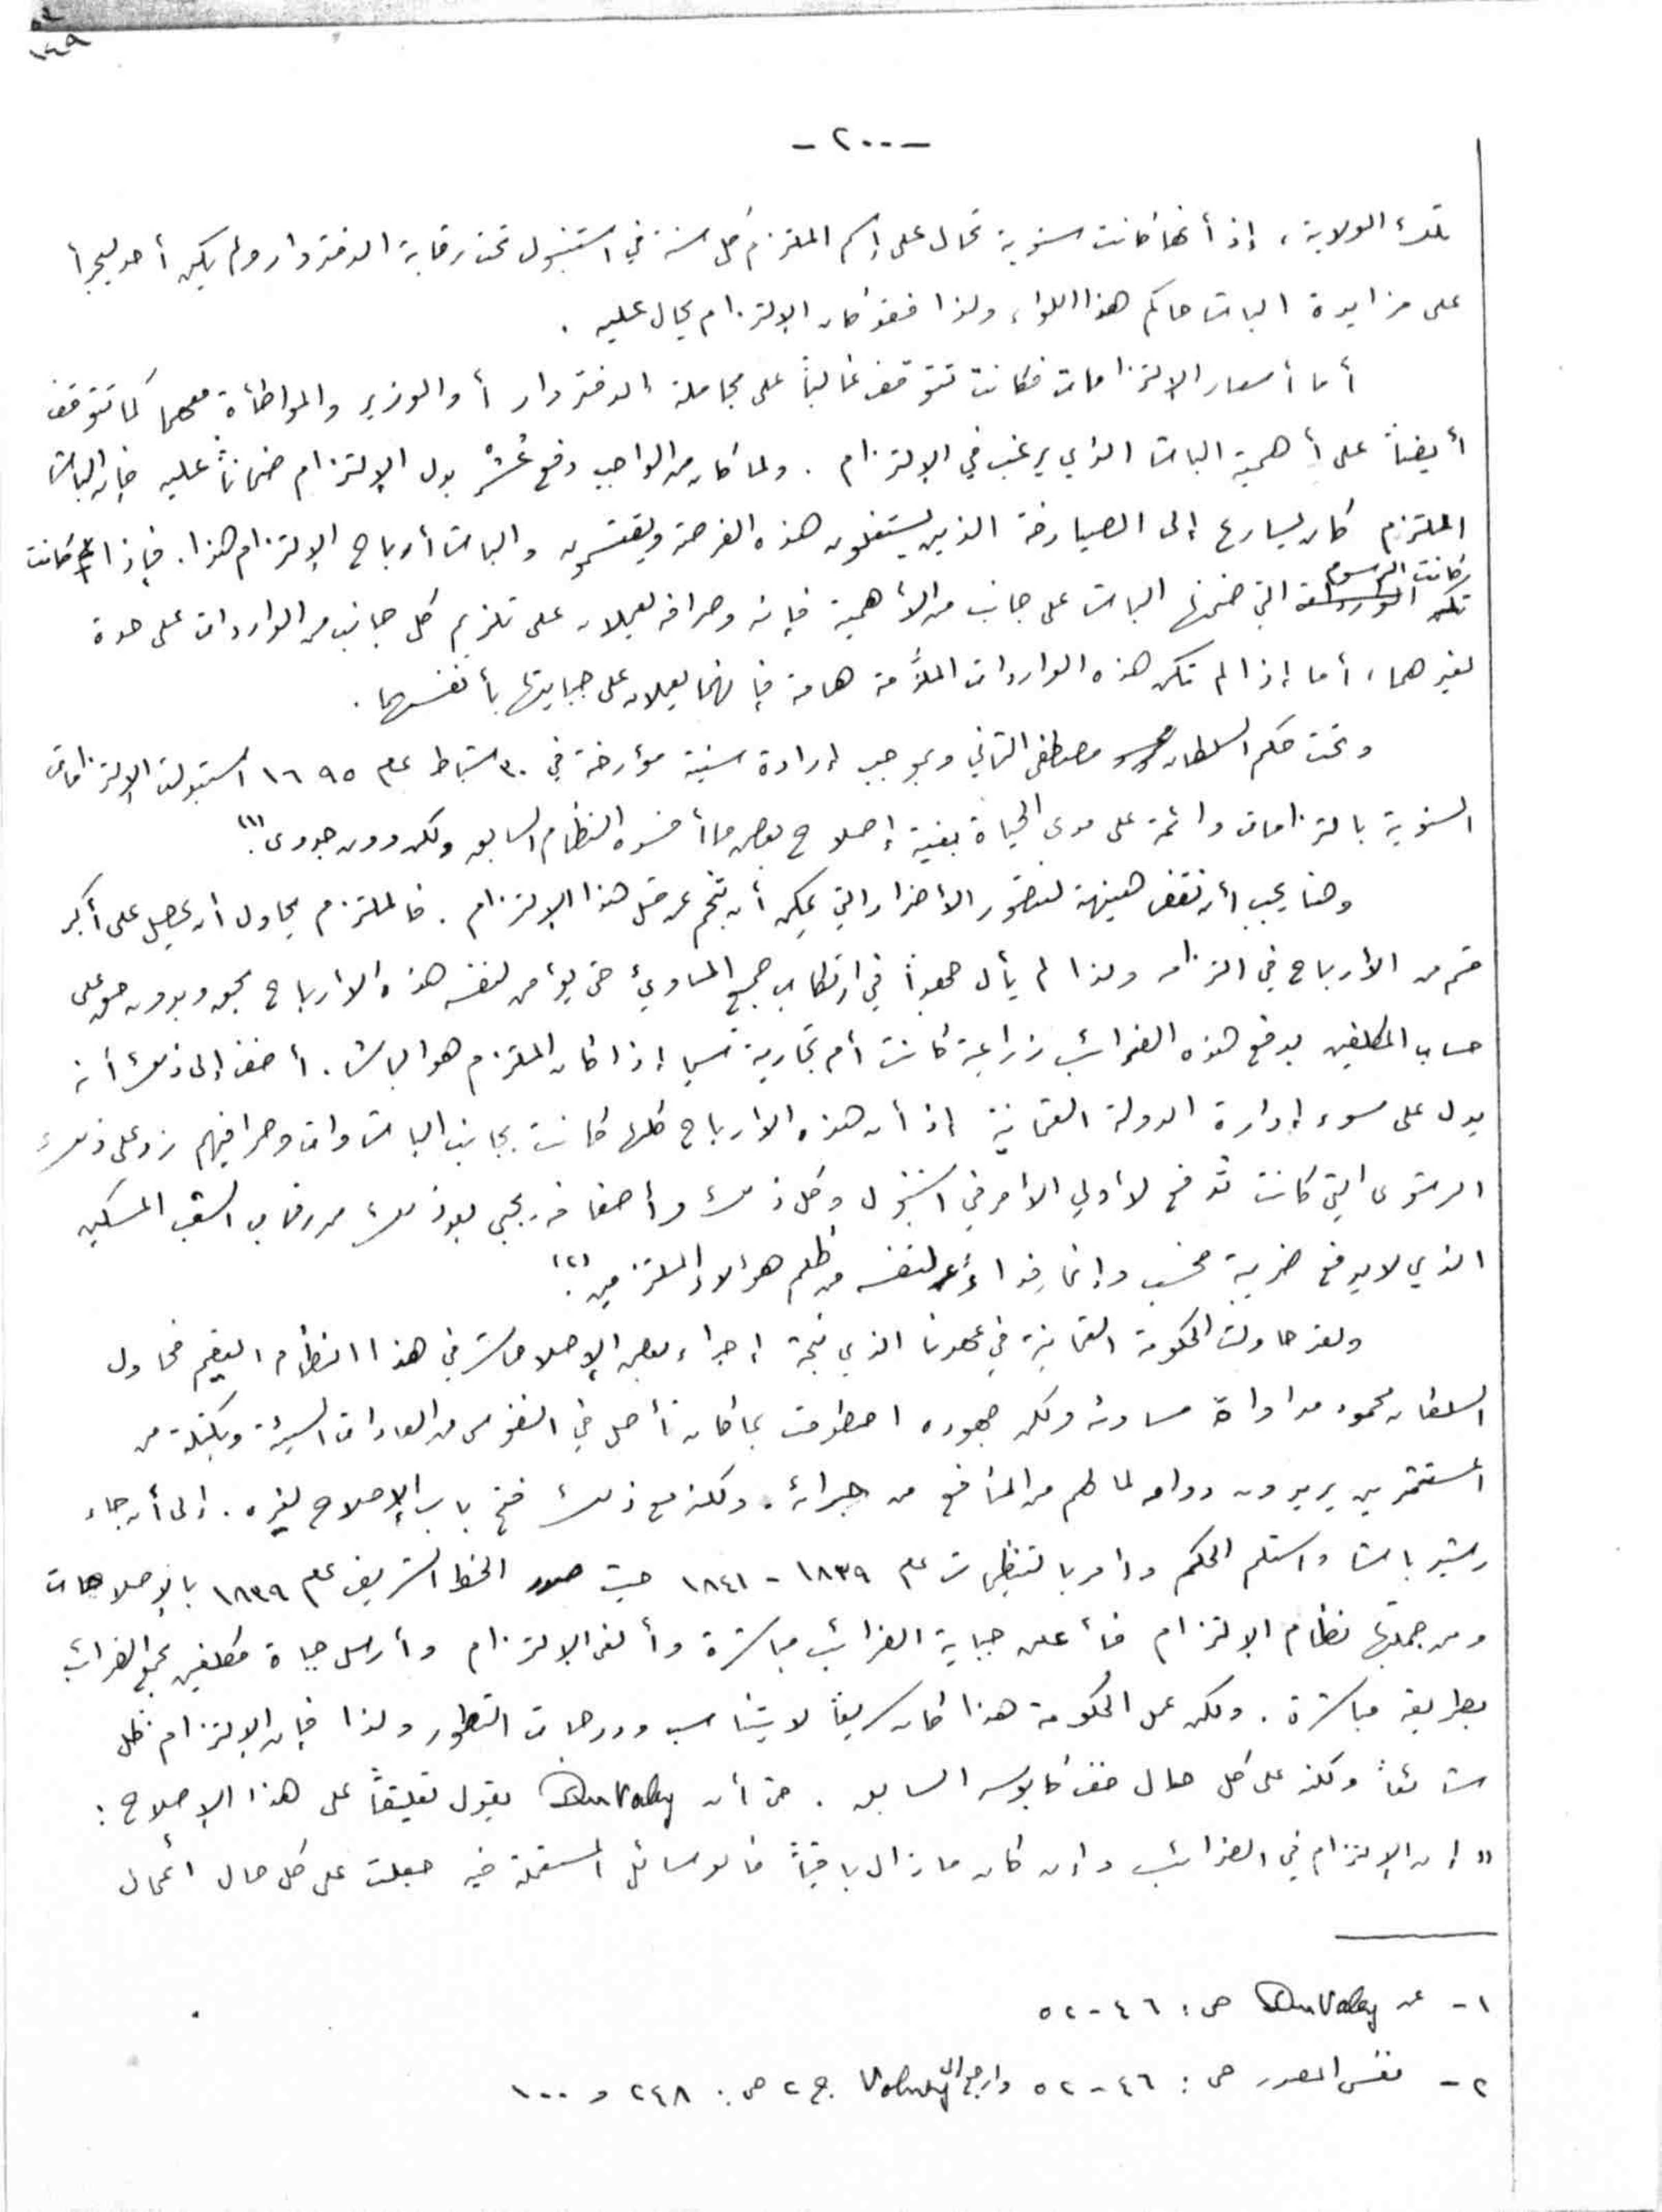 ١٤٩
- ٢٠٠ -
تلك الولاية ، إذ أنها كانت سنوية تحال على إسم الملتزم كل سنة في استنبول تحت رقابة الدفتردار ولم يكن أحد ليجرأ
على مزايدة الباشا حاكم هذا اللواء ولذا فقد كان الإلتزام يحال عليه .
أما أسعار الإلتزامات فكانت تتوقف غالباً على مجاملة الدفتردار أو الوزير والمواطأة معهما كما تتوقف
أيضاً على أهمية الباشا الذي يرغب في الإلتزام . ولما كان من الواجب دفع عُشْر بدل الإلتزام ضماناً عليه فإن الباشا
الملتزم كان يسارع إلى الصيارفة الذين يستغلون هذه الفرصة ويقتسمون والباشا أرباح الإلتزام هذا . فإذا كانت
الرسوم التي ضمنها الباشا على جانب من الأهمية فإنه وصرافه يعملان على تلزيم كل جانب من الواردات على حدة
لغيرهما ، أما إذا لم تكن هذه الواردات الملزَّمة هامة فإنهما يعملان على جبايتها بأنفسهما .
وتحت حكم السلطان مصطفى الثاني وبموجب إرادة سنية مؤرخة في ٣٠ شباط عام ١٦٩٥ استبدلت الإلتزامات
السنوية بالتزامات دائمة على مدى الحياة بغية إصلاح بعض ما أفسده النظام السابق ولكن دون جدوى (١) .
وهنا يجب أن نقف هنيهة لنتصور الأضرار التي يمكن أن تنجم عن مثل هذا الإلتزام . فالملتزم يحاول أن يحصل على أكبر
قسم من الأرباح في التزامه ولذا لم يأل جهداً في ارتكاب جميع المساوئ حتى يؤمن لنفسه هذه الأرباح بحق وبدون حق على
حساب المكلفين بدفع هذه الضرائب زراعية كانت أم تجارية سيما إذا كان الملتزم هو الباشا . أضف إلى ذلك أنه
يدل على سوء إدارة الدولة العثمانية إذ أن هذه الأرباح كلها كانت بجانب الباشاوات وصرافيهم زد على ذلك
الرشوى التي كانت تُدفع لأولي الأمر في استنبول وكل ذلك وأضعافه يجبى بعد ذلك من رقاب الشعب المسكين
الذي لا يدفع ضريبة فحسب وإنما فداءً لنفسه من ظلم هؤلاء الملتزمين (٢) .
ولقد حاولت الحكومة العثمانية في عهدنا الذي نبحثه إجراء بعض الإصلاحات في هذا النظام العقيم فحاول
السلطان محمود مداواة مساوئه ولكن جهوده اصطدمت بما كان تأصل في النفوس من العادات السيئة وبكتلة من
المستثمرين يريدون دوامه لما لهم من المنافع من جرائه . ولكنه مع ذلك فتح باب الإصلاح لغيره . إلى أن جاء
رشيد باشا واستلم الحكم وأمر بالتنظيمات عام ١٨٣٩ - ١٨٤١ حيث صدر الخط الشريف عام ١٨٣٩ بالإصلاحات
ومن جملتها نظام الإلتزام فأعلن جباية الضرائب مباشرة وألغى الإلتزام وأرسل جباة مكلفين بجمع الضرائب
بطريقة مباشرة . ولكن عمل الحكومة هذا كان سريعاً لا يتناسب ودرجات التطور ولذا فإن الإلتزام ظل
شائعاً ولكنه على كل حال خفف كابوسه السابق . حتى أن Du Velay يقول تعليقاً على هذا الإصلاح :
" إن الإلتزام في الضرائب وإن كان ما زال باقياً فالوسائل المستعملة فيه جعلت على كل حال أعمال
١ - عن Du Velay ص : ٤٦ - ٥٢
٢ - نفس المصدر ص : ٤٦ - ٥٢ وارجع إلى Volney ج ٢ ص : ٢٤٨ و ١٠٠